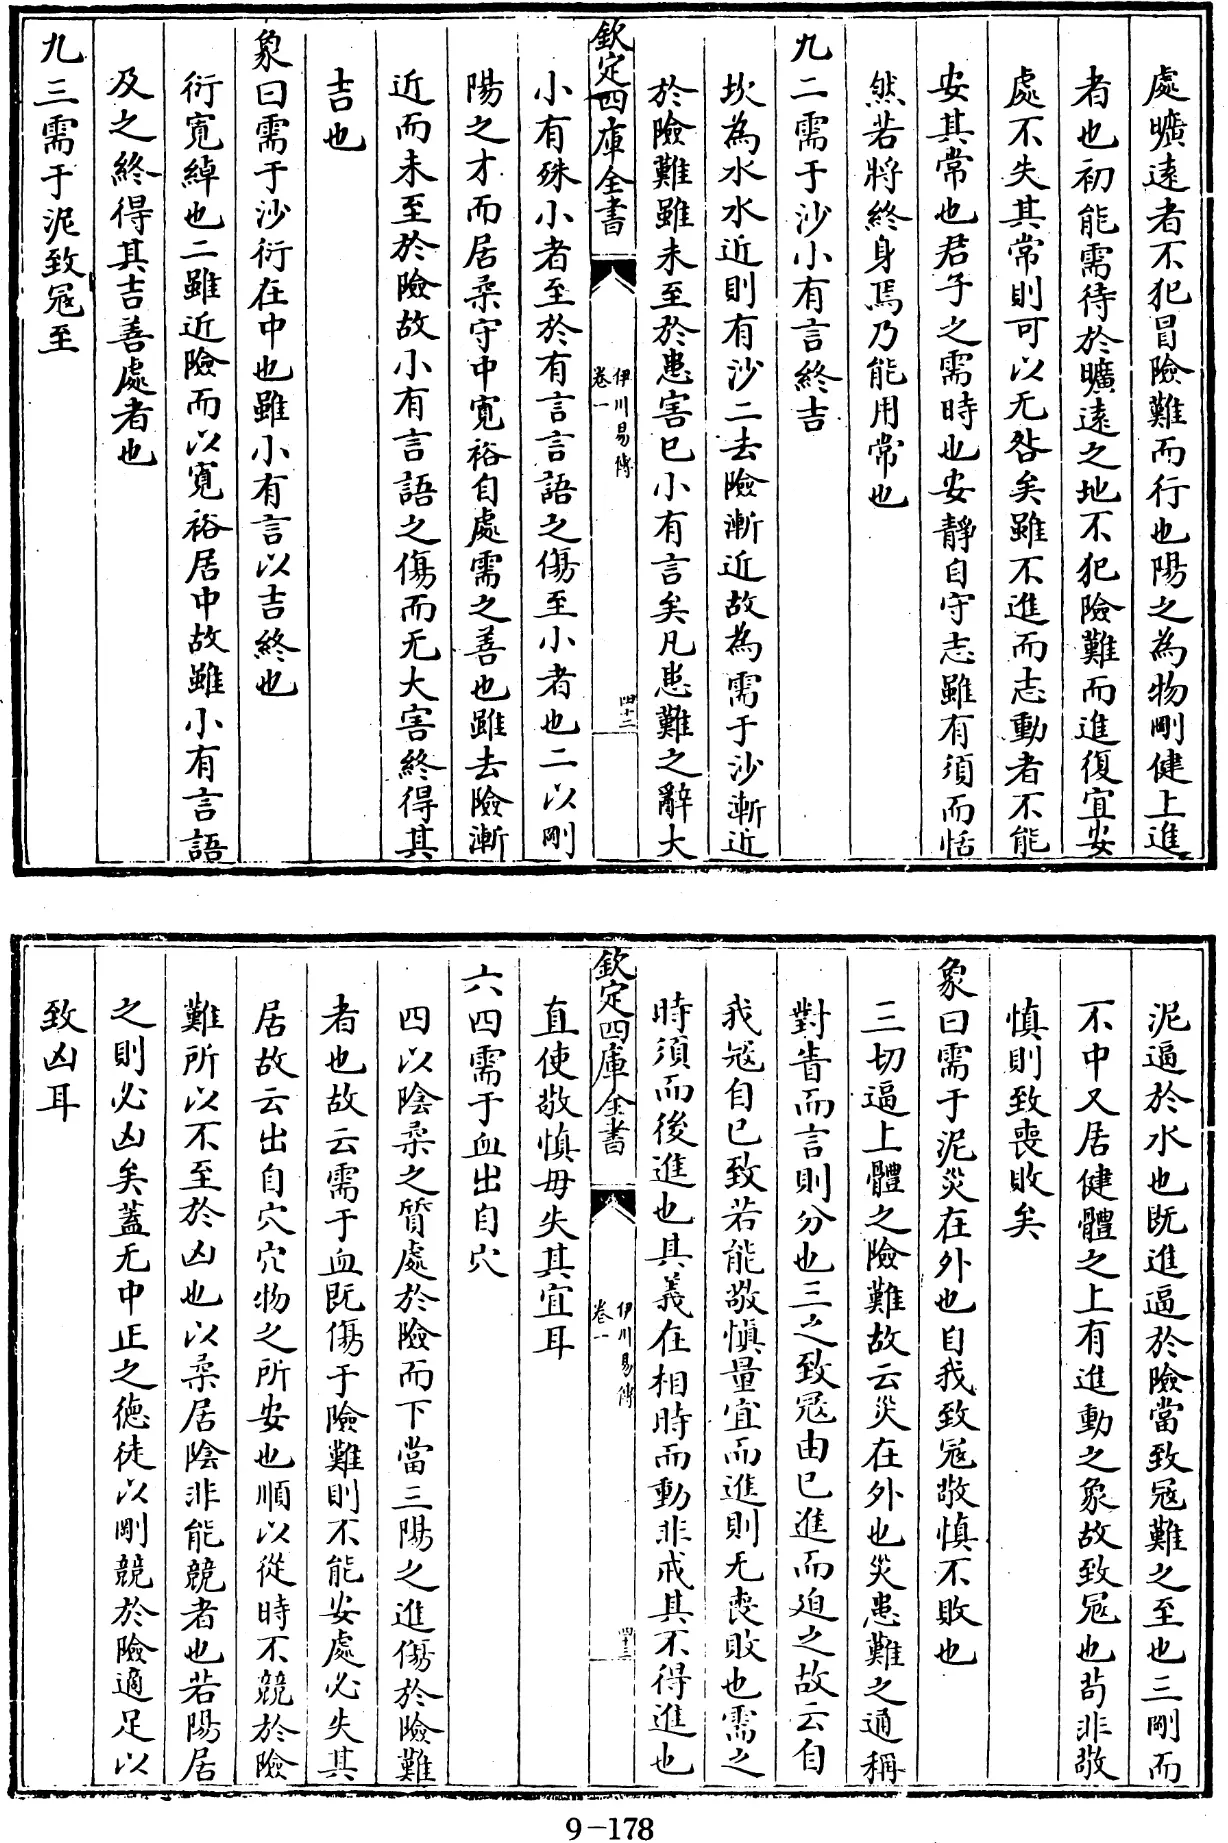 處曠遠者不犯冒險難而行也陽之為物剛健上進
者也初能需待於曠遠之地不犯險難而進復宜安
處不失其常則可以无咎矣雖不進而志動者不能
安其常也君子之需時也安靜自守志雖有須而恬
然若將終身焉乃能用常也
九二需于沙小有言終吉
坎為水水近則有沙二去險漸近故為需于沙漸近
於險難雖未至於患害已小有言矣凡患難之辭大
欽定四庫全書
伊川易傳
卷一
四十二
小有殊小者至於有言言語之傷至小者也二以剛
陽之才而居柔守中寬裕自處需之善也雖去險漸
近而未至於險故小有言語之傷而无大害終得其
吉也
象曰需于沙衍在中也雖小有言以吉終也
衍寬綽也二雖近險而以寬裕居中故雖小有言語
及之終得其吉善處者也
九三需于泥致寇至
泥逼於水也既進逼於險當致寇難之至也三剛而
不中又居健體之上有進動之象故致寇也苟非敬
慎則致喪敗矣
象曰需于泥災在外也自我致寇敬慎不敗也
三切逼上體之險難故云災在外也災患難之通稱
對眚而言則分也三之致寇由已進而迫之故云自
我寇自已致若能敬慎量宜而進則无喪敗也需之
時須而後進也其義在相時而動非戒其不得進也
欽定四庫全書
伊川易傳
卷一
四十三
直使敬慎毋失其宜耳
六四需于血出自穴
四以陰柔之質處於險而下當三陽之進傷於險難
者也故云需于血既傷于險難則不能安處必失其
居故云出自穴穴物之所安也順以從時不競於險
難所以不至於凶也以柔居陰非能競者也若陽居
之則必凶矣蓋无中正之德徒以剛競於險適足以
致凶耳
9-178